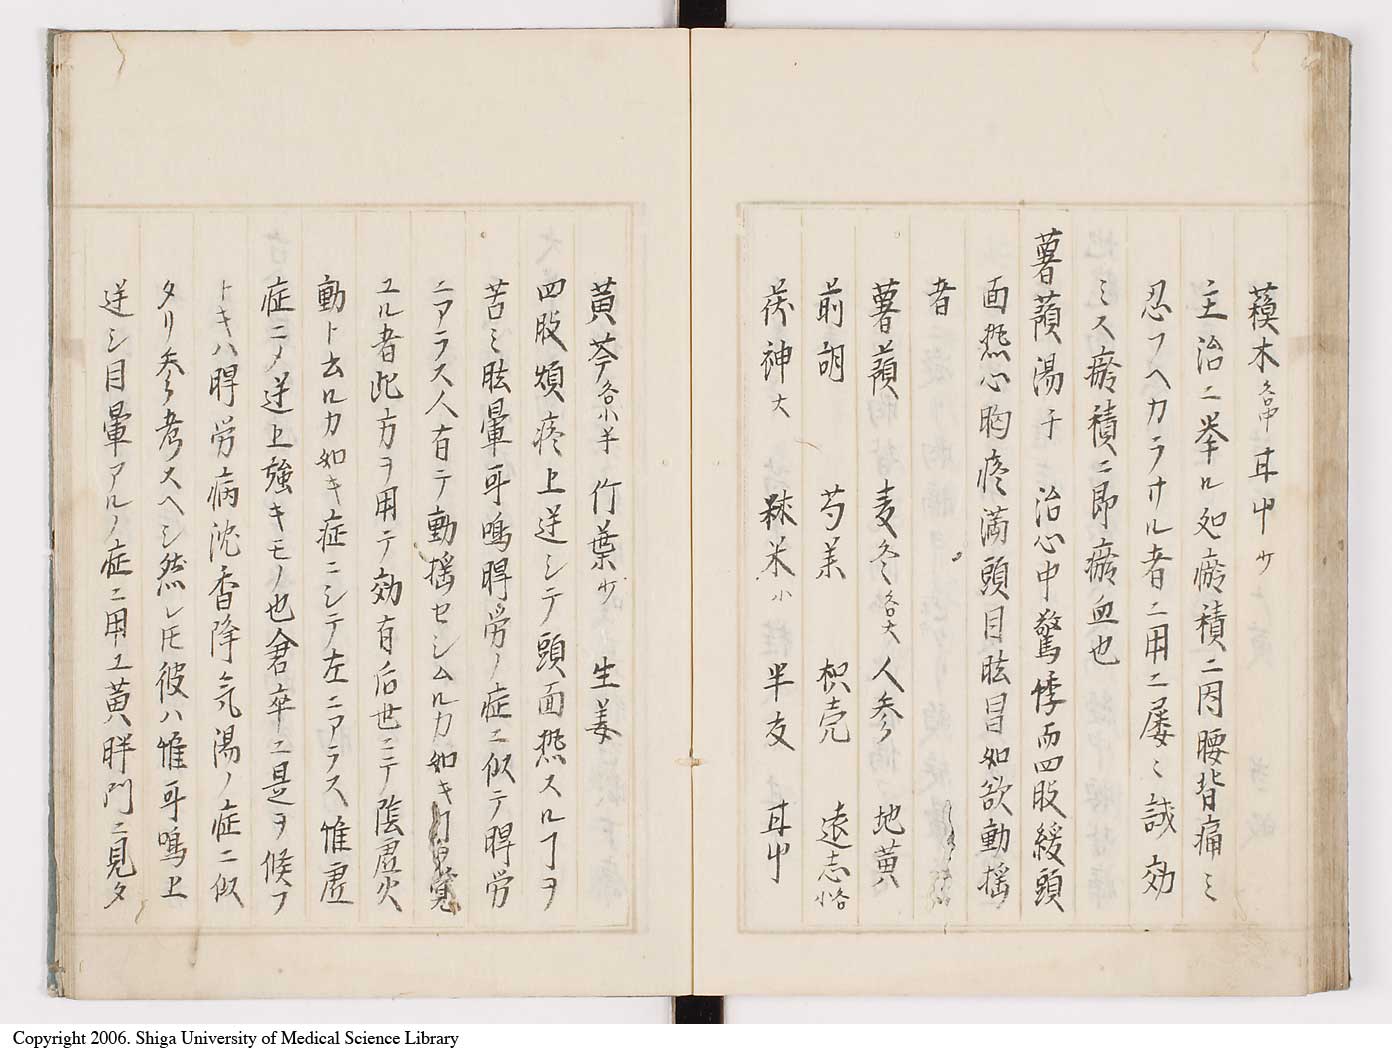 蔱木 各中 甘中 少
主治ニ挙ル処瘀積ニ因腰背痛ミ
忍フヘカラサル者ニ用ニ屡ミ試効
ミス瘀積ニ即瘀血也
薯蕷湯千 治心中驚悸而四肢緩頭
面热心胸痰満頭目眩冒如欲動揺
者
薯蕷 麦冬 各大 人参 地黄
前胡 芍薬 枳壳 遠志 各小
茯神 大 秫米 小 半夏 甘中
黄芩 各小半 竹葉 少 生姜
四肢煩疼上逆シテ頭面热スル丁ヲ
苦ミ眩暈耳鳴脾労ノ症ニ似テ脾労
ニアラス人有テ動揺セシムルカ如キ
ユル者此方ヲ用テ効有后世ニテ陰虚火
動ト云ルカ如キ症ニシテ左ニアラス惟虚
症ニメ逆上強キモノ也倉卒ニ是ヲ候フ
トキハ脾労病沈香降気湯ノ症ニ似
タリ参考スヘシ然レ𪜈彼ハ惟耳鳴上
逆シ目暈アルノ症ニ用ユ黄胖門ニ見タ
Copyright 2006. Shiga University of Medical Science Library